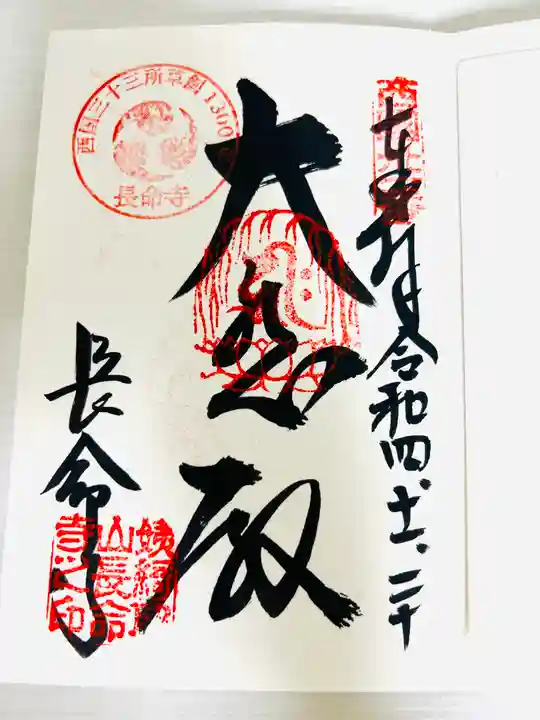 奉拝
令和四、十一、二十
大悲殿
長命寺
西国三十三所草創1300
長命寺
姨綺耶
山長命
寺之印